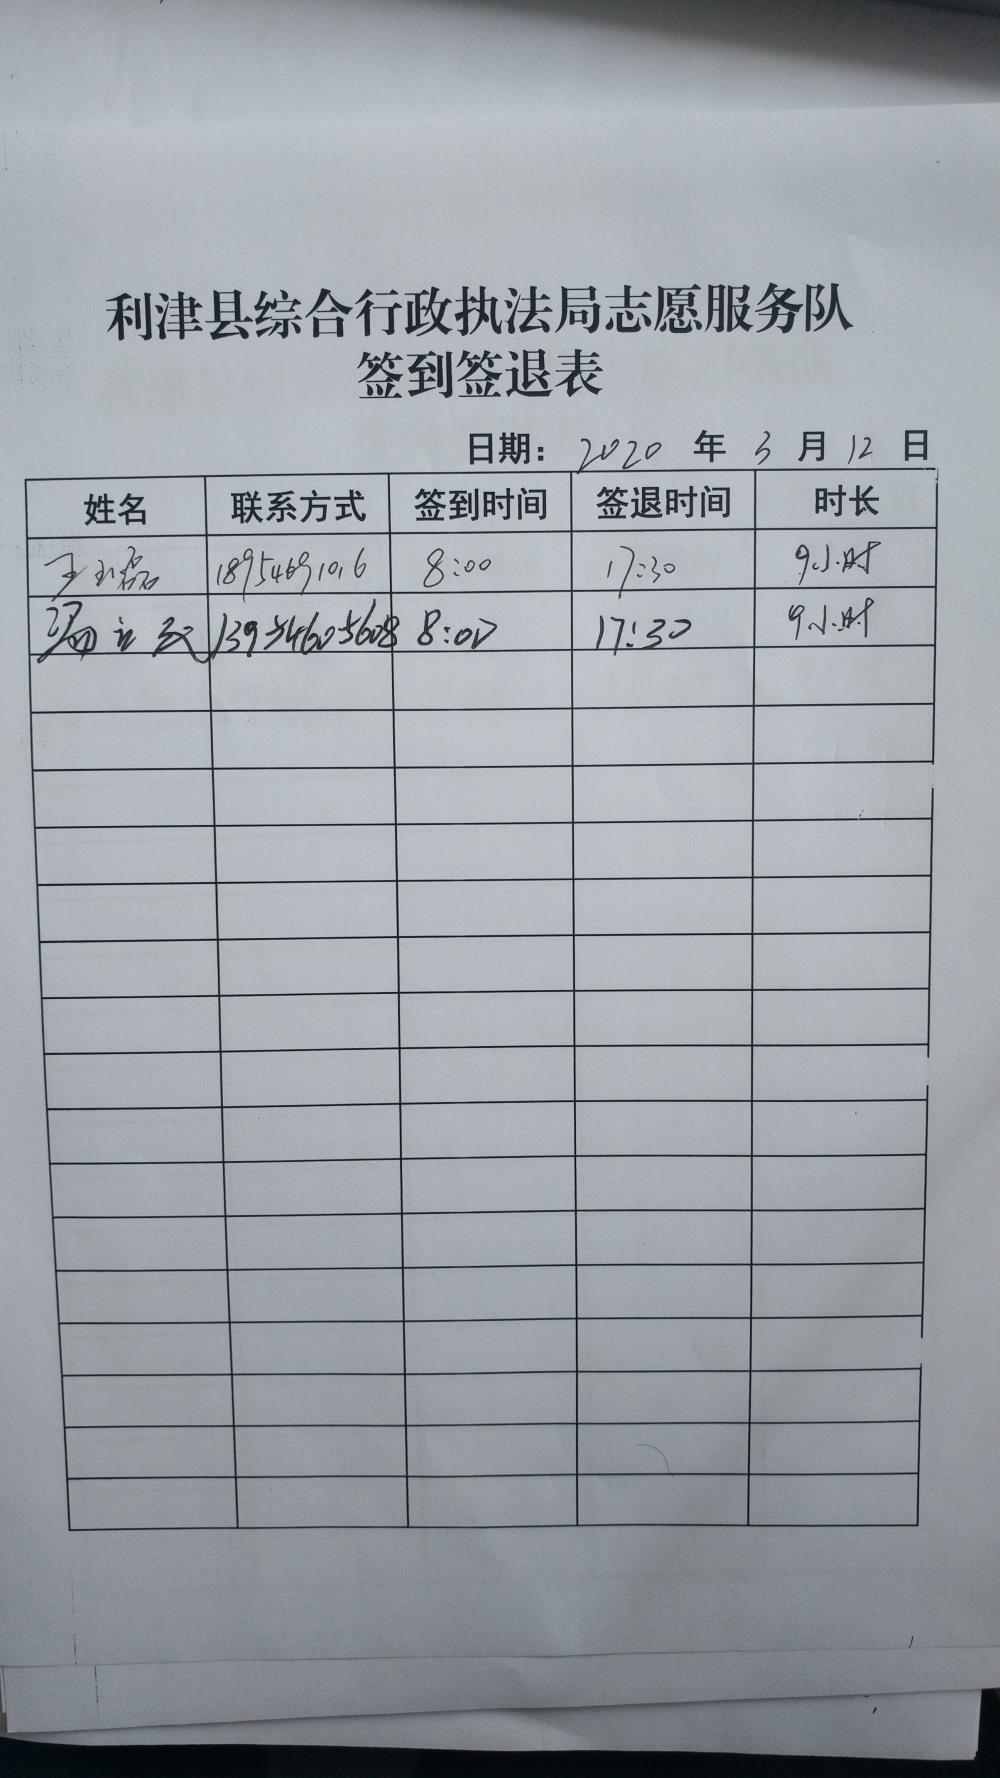 利津县综合行政执法局志愿服务队
签到签退表
日期： 2020 年 3 月 12 日
姓名 联系方式 签到时间 签退时间 时长
王玉磊 18954691016 8:00 17:30 9小时
冯 13954605608 8:00 17:30 9小时